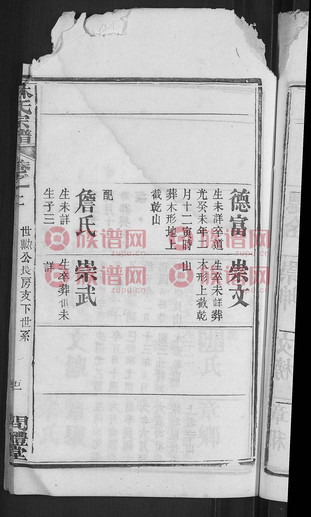 德富
生未詳卒道
光癸未年二
月十二寅時
葬木形地上
截乾山
配
詹氏
生未詳
生子三
崇文
生卒未詳葬
木形上截乾
山
崇武
生卒葬俱未
詳
氏宗譜
世勲公長房支下世系
聞禮堂
族谱网
zupu.cn